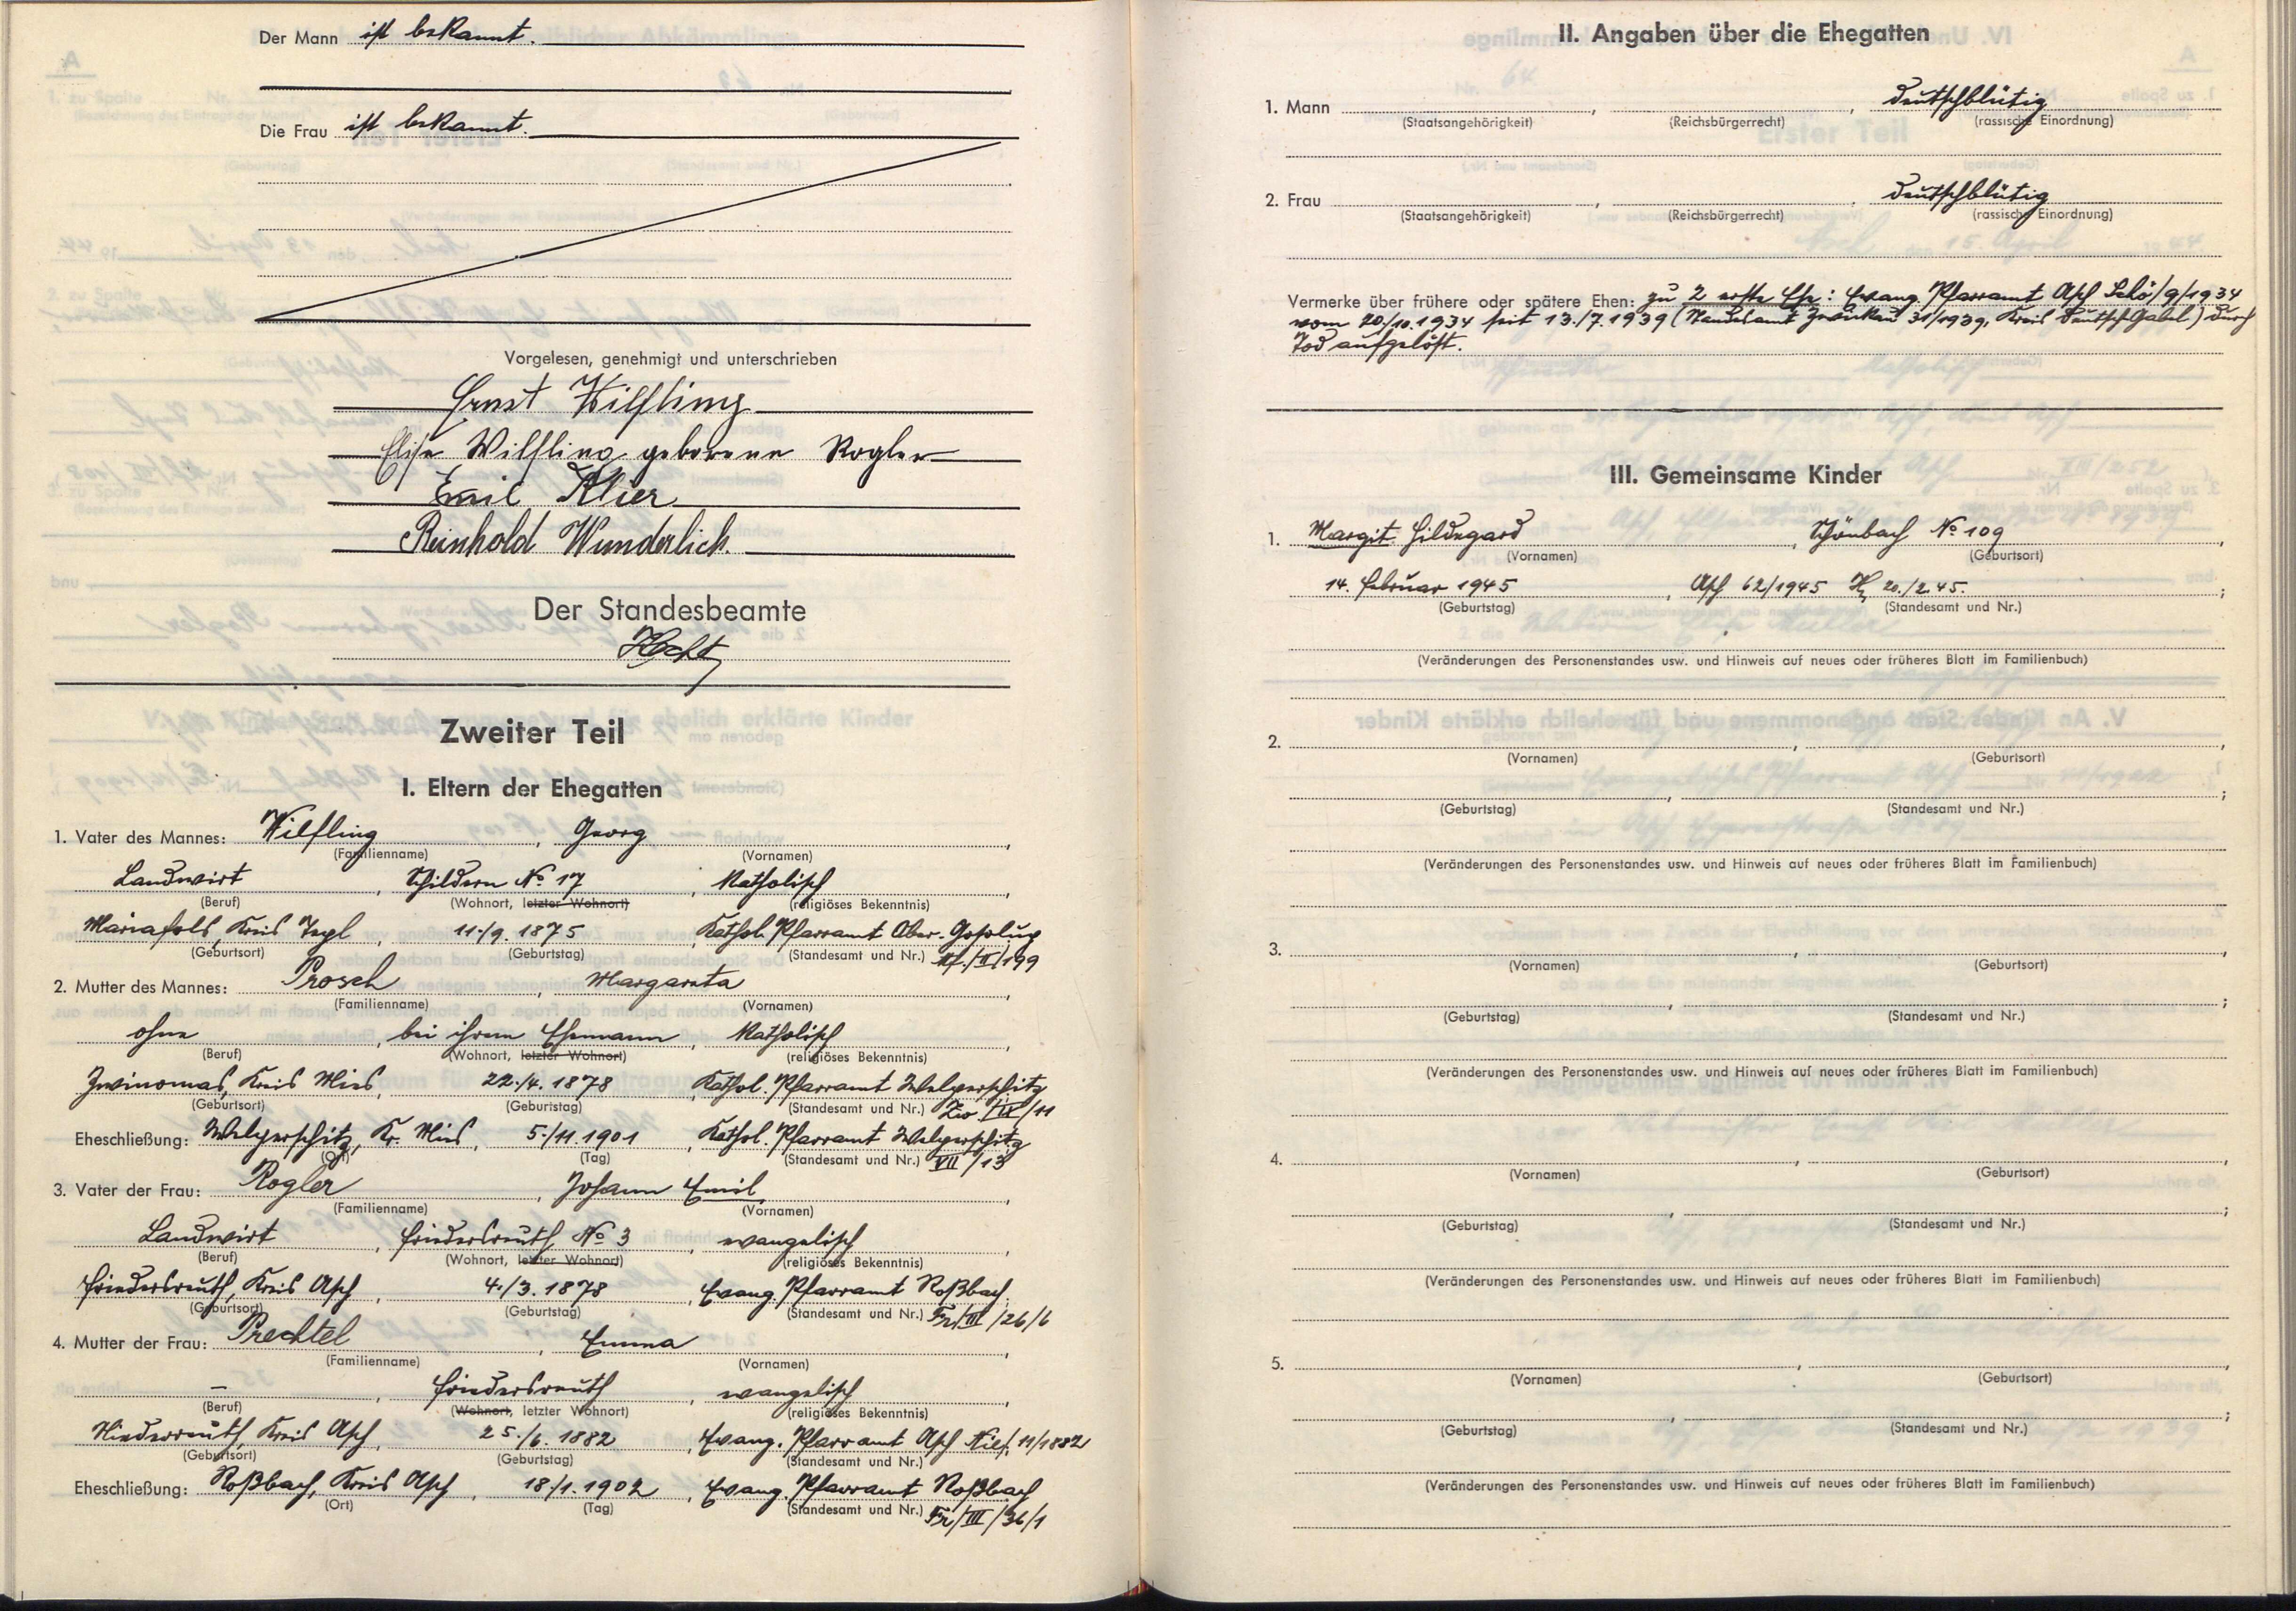 Der Mann ist bekannt.
Die Frau ist bekannt.
Vorgelesen, genehmigt und unterschrieben
Ernst Wilfling
Elise Wilfling geborene Rogler
Emil Klier
Reinhold Wunderlich.
Der Standesbeamte
Hecht
Zweiter Teil
I. Eltern der Ehegatten
1. Vater des Mannes: Wilfling, Georg
(Familienname) (Vornamen)
Landwirt, Schildern No 17, katholisch,
(Beruf) (Wohnort, letzter Wohnort) (religiöses Bekenntnis)
Mariafels, Kreis Tepl, 11./9. 1875, Kathol. Pfarramt Ober-Gosolup
(Geburtsort) (Geburtstag) (Standesamt und Nr.) /II/199
2. Mutter des Mannes: Prosch, Margareta
(Familienname) (Vornamen)
ohne, bei ihrem Ehemann, katholisch,
(Beruf) (Wohnort, letzter Wohnort) (religiöses Bekenntnis)
Zwinomas, Kreis Mies, 22./4. 1878, Kathol. Pfarramt Welperschitz
(Geburtsort) (Geburtstag) (Standesamt und Nr.) Zw. /11
Eheschließung: Welperschitz, Kr. Mies, 5./11. 1901, Kathol. Pfarramt Welperschitz
(Ort) (Tag) (Standesamt und Nr.) VII/13
3. Vater der Frau: Rogler, Johann Emil,
(Familienname) (Vornamen)
Landwirt, Friedersreuth No 3, evangelisch,
(Beruf) (Wohnort, letzter Wohnort) (religiöses Bekenntnis)
Friedersreuth, Kreis Asch, 4./3. 1878, Evang. Pfarramt Roßbach.
(Geburtsort) (Geburtstag) (Standesamt und Nr.) Fr/III/26/6
4. Mutter der Frau: Prechtel, Emma,
(Familienname) (Vornamen)
–, Friedersreuth, evangelisch,
(Beruf) (Wohnort, letzter Wohnort) (religiöses Bekenntnis)
Niederreuth, Kreis Asch, 25./6. 1882, Evang. Pfarramt Asch Nied. 11/1882
(Geburtsort) (Geburtstag) (Standesamt und Nr.)
Eheschließung: Roßbach, Kreis Asch, 18./1. 1902, Evang. Pfarramt Roßbach
(Ort) (Tag) (Standesamt und Nr.) Fr/III/36/1
II. Angaben über die Ehegatten
1. Mann , , deutschblütig
(Staatsangehörigkeit) (Reichsbürgerrecht) (rassische Einordnung)
2. Frau , , deutschblütig
(Staatsangehörigkeit) (Reichsbürgerrecht) (rassische Einordnung)
Vermerke über frühere oder spätere Ehen: zu 2 erste Ehe: Evang. Pfarramt Asch Schö/9/1934
vom 20./10. 1934 seit 13./7. 1939 (Standesamt Zwickau 31/1939, Kreis Deutsch Gabel) durch
Tod aufgelöst.
III. Gemeinsame Kinder
1. Margit Hildegard, Schönbach No 109,
(Vornamen) (Geburtsort)
14. Februar 1945, Asch 62/1945 H, 20./2. 45.;
(Geburtstag) (Standesamt und Nr.)
(Veränderungen des Personenstandes usw. und Hinweis auf neues oder früheres Blatt im Familienbuch)
2. , ,
(Vornamen) (Geburtsort)
, ;
(Geburtstag) (Standesamt und Nr.)
(Veränderungen des Personenstandes usw. und Hinweis auf neues oder früheres Blatt im Familienbuch)
3. , ,
(Vornamen) (Geburtsort)
, ;
(Geburtstag) (Standesamt und Nr.)
(Veränderungen des Personenstandes usw. und Hinweis auf neues oder früheres Blatt im Familienbuch)
4. , ,
(Vornamen) (Geburtsort)
, ;
(Geburtstag) (Standesamt und Nr.)
(Veränderungen des Personenstandes usw. und Hinweis auf neues oder früheres Blatt im Familienbuch)
5. , ,
(Vornamen) (Geburtsort)
, ;
(Geburtstag) (Standesamt und Nr.)
(Veränderungen des Personenstandes usw. und Hinweis auf neues oder früheres Blatt im Familienbuch)